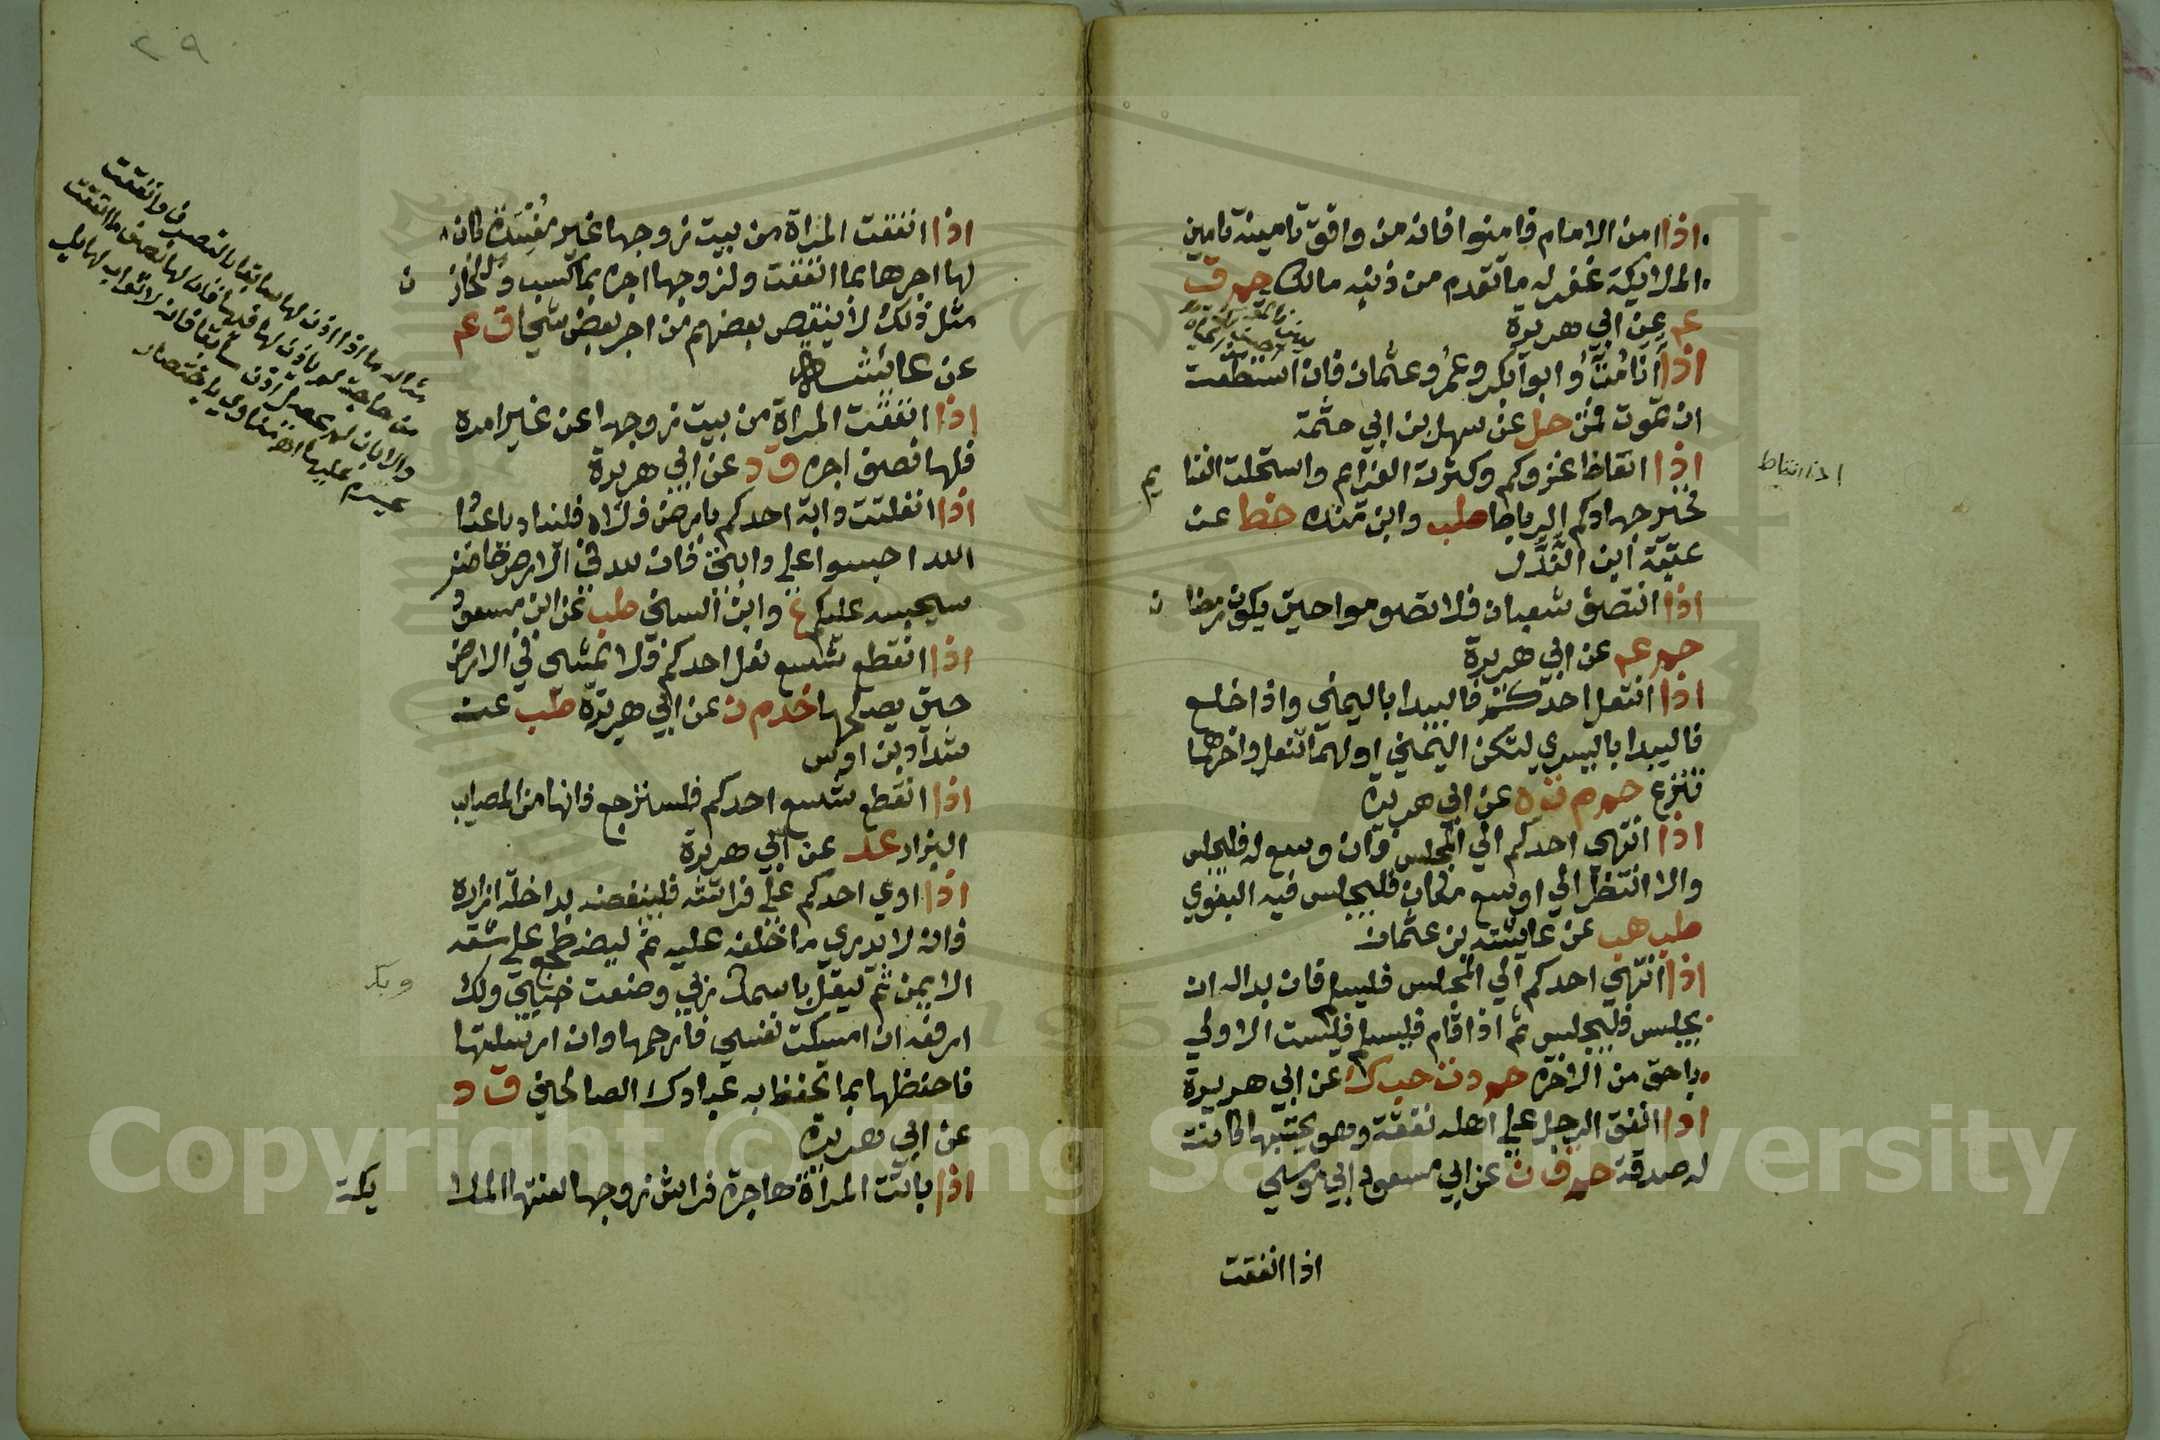 اذا امن الامام فامنوا فانه من وافق تامينه تامين
الملايكة غفر له ما تقدم من ذنبه مالك حم ق
عم عن ابي هريرة
اذا انا مت وابو بكر وعمر وعثمان فان استطعت
ان تموت فمت حل عن سهل بن ابي حثمة
اذا انتاط غزوكم وكثرت الغرايم واستحلت الغنا
يم
اذا انتاط
فخير جهادكم الرباط طب وابن منده خط عن
عتبة ابن الندر
اذا انتصف شعبان فلا تصوموا حتى يكون رمضا
ن
حم عم عن ابي هريرة
اذا انتعل احدكم فاليبدا باليمنى واذا خلع
فاليبدا باليسرى لتكن اليمنى اولهما تنعل واخرهما
تنزع حم م د ت ه عن ابي هريرة
اذا انتهى احدكم الى المجلس فان وسع له فليجلس
والا انتظر الى اوسع مكان فليجلس فيه البغوي
طب هب عن عايشة بن عثمان
اذا انتهى احدكم الى المجلس فليسلم فان بدا له ان
يجلس فليجلس ثم اذا قام فليسلم فليست الاولى
باحق من الاخرة حم د ت حب ك عن ابي هريرة
اذا انفق الرجل على اهله نفقة وهو يحتسبها كانت
له صدقة حم ق ن عن ابي مسعود
اذا انفقت
٢٩
اذا انفقت المراة من بيت زوجها غير مفسدة كان
لها اجرها بما انفقت ولزوجها اجره بما كسب وللخاز
ن
مثل ذلك لا ينقص بعضهم من اجر بعض شيا ق عم
عن عائشة
اذا انفقت المراة من بيت زوجها عن غير امره
فلها نصف اجره ق د عن ابي هريرة
اذا انفلتت دابة احدكم بارض فلاة فليناد يا عباد
الله احبسوا علي دابتي فان لله في الارض حاضر
سيحبسه عليكم ع وابن السني طب عن ابن مسعود
اذا انقطع شسع نعل احدكم فلا يمشي في الارض
حتى يصلحها خد م ن عن ابي هريرة طب عن
شداد بن اوس
اذا انقطع شسع احدكم فليسترجع فانها من المصايب
البزار عد عن ابي هريرة
اذا اوى احدكم على فراشه فلينفضه بداخلة ازاره
فانه لا يدري ما خلفه عليه ثم ليضطجع على شقه
الايمن ثم ليقل باسمك ربي وضعت جنبي وبك
وبك
ارفعه ان امسكت نفسي فارحمها وان ارسلتها
فاحفظها بما تحفظ به عبادك الصالحين ق د
عن ابي هريرة
اذا باتت المراة هاجرة فراش زوجها لعنتها الملا
يكة